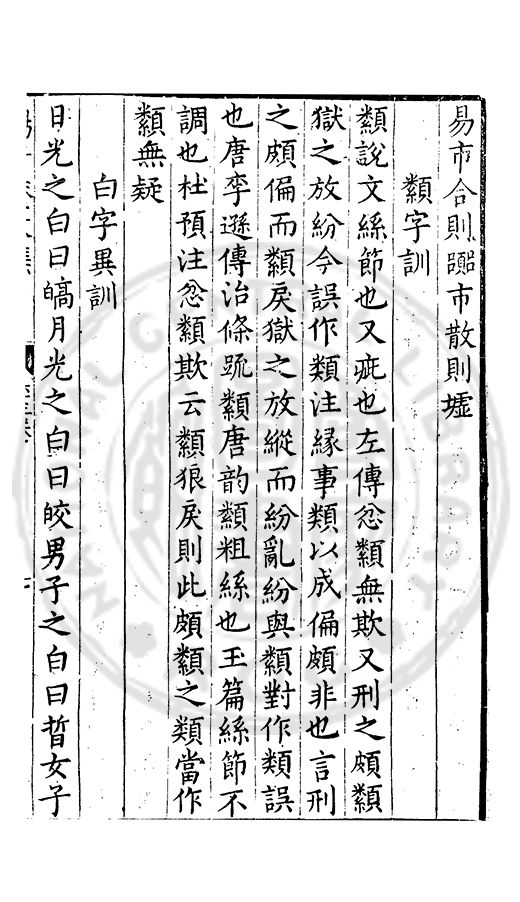 易市合則嚻市散則墟
纇字訓
纇說文絲節也又疵也左傳忿纇無欺又刑之頗纇
獄之放紛今誤作類注緣事類以成偏頗非也言刑
之頗偏而纇戾獄之放縱而紛亂紛與纇對作類誤
也唐李遜傳治條疏纇唐韵纇粗絲也玉篇絲節不
調也杜預注忿纇欺云纇狼戾則此頗纇之類當作
纇無疑
白字異訓
日光之白曰皜月光之白曰皎男子之白曰晳女子